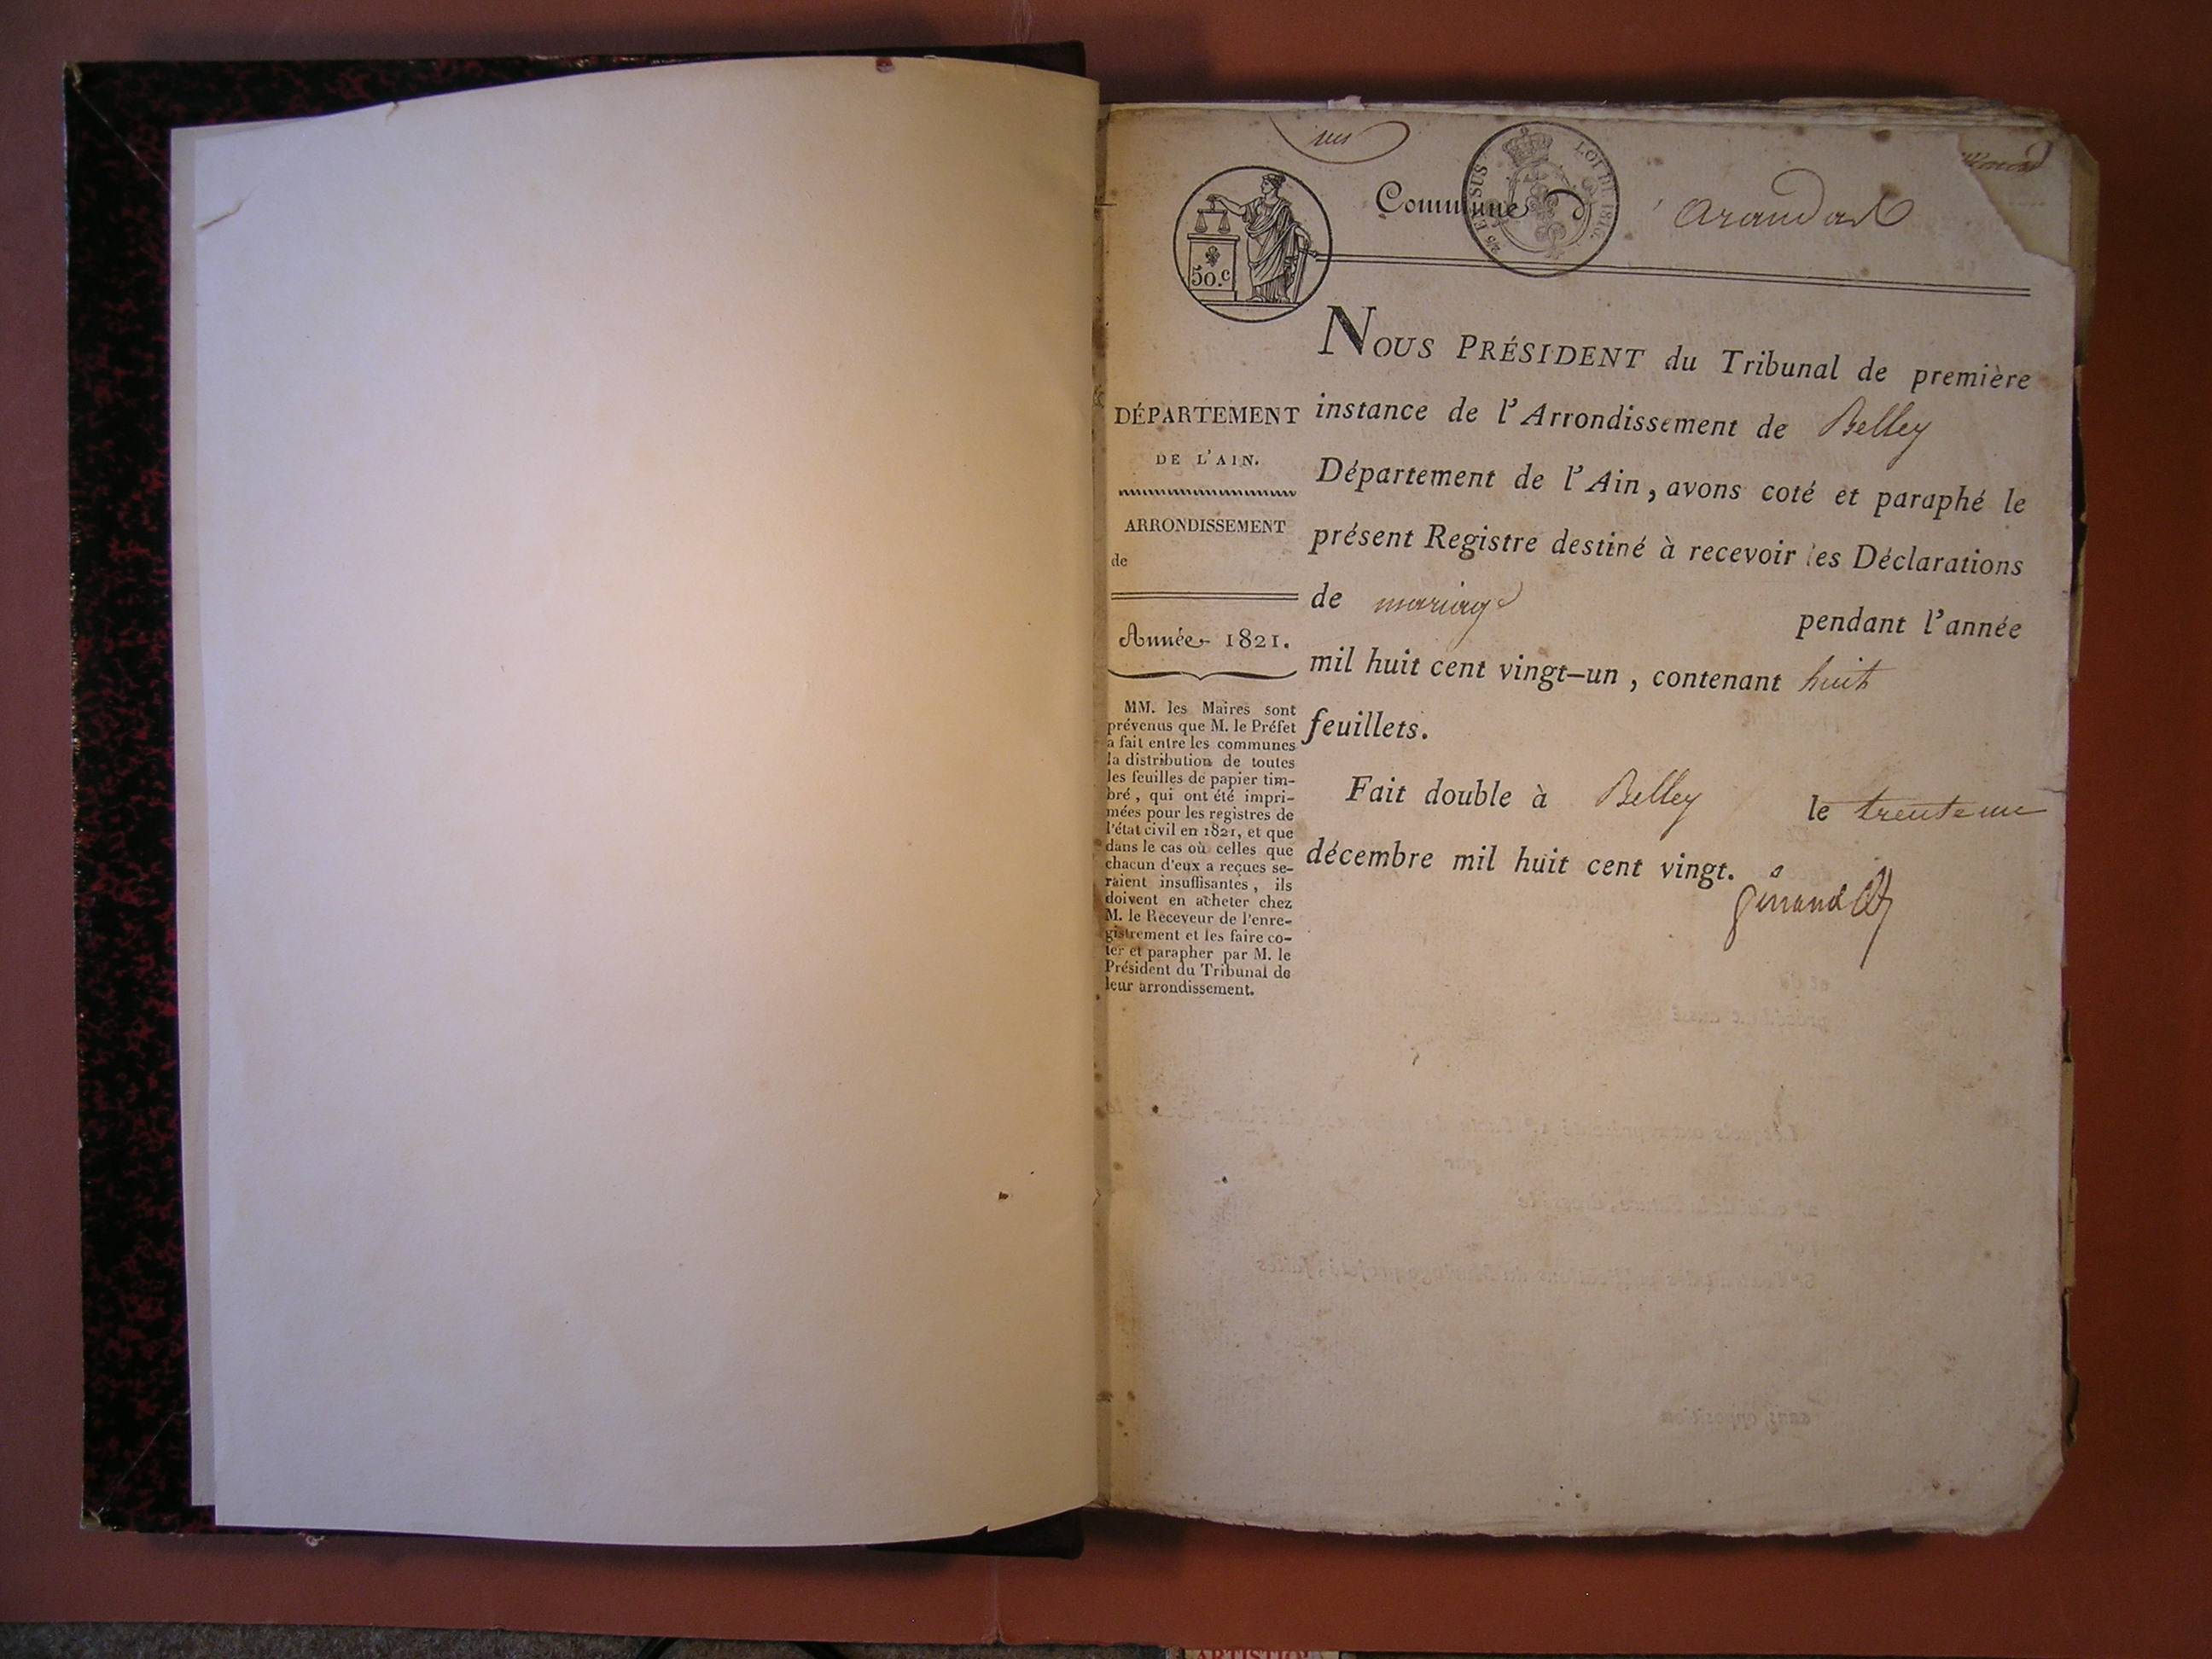 un
Commune d' arandas
EN SUS
LOI DE 1816.
50.c
NOUS PRÉSIDENT du Tribunal de première
instance de l'Arrondissement de Belley
Département de l'Ain, avons coté et paraphé le
présent Registre destiné à recevoir les Déclarations
de mariage pendant l'année
mil huit cent vingt-un, contenant huit
feuillets.
Fait double à Belley le trente un
décembre mil huit cent vingt.
DÉPARTEMENT
DE L'AIN.
ARRONDISSEMENT
de
Année 1821.
MM. les Maires sont
prévenus que M. le Préfet
a fait entre les communes
la distribution de toutes
les feuilles de papier tim-
bré, qui ont été impri-
mées pour les registres de
l'état civil en 1821, et que
dans le cas où celles que
chacun d'eux a reçues se-
raient insuffisantes, ils
doivent en acheter chez
M. le Receveur de l'enre-
gistrement et les faire co-
ter et parapher par M. le
Président du Tribunal de
leur arrondissement.